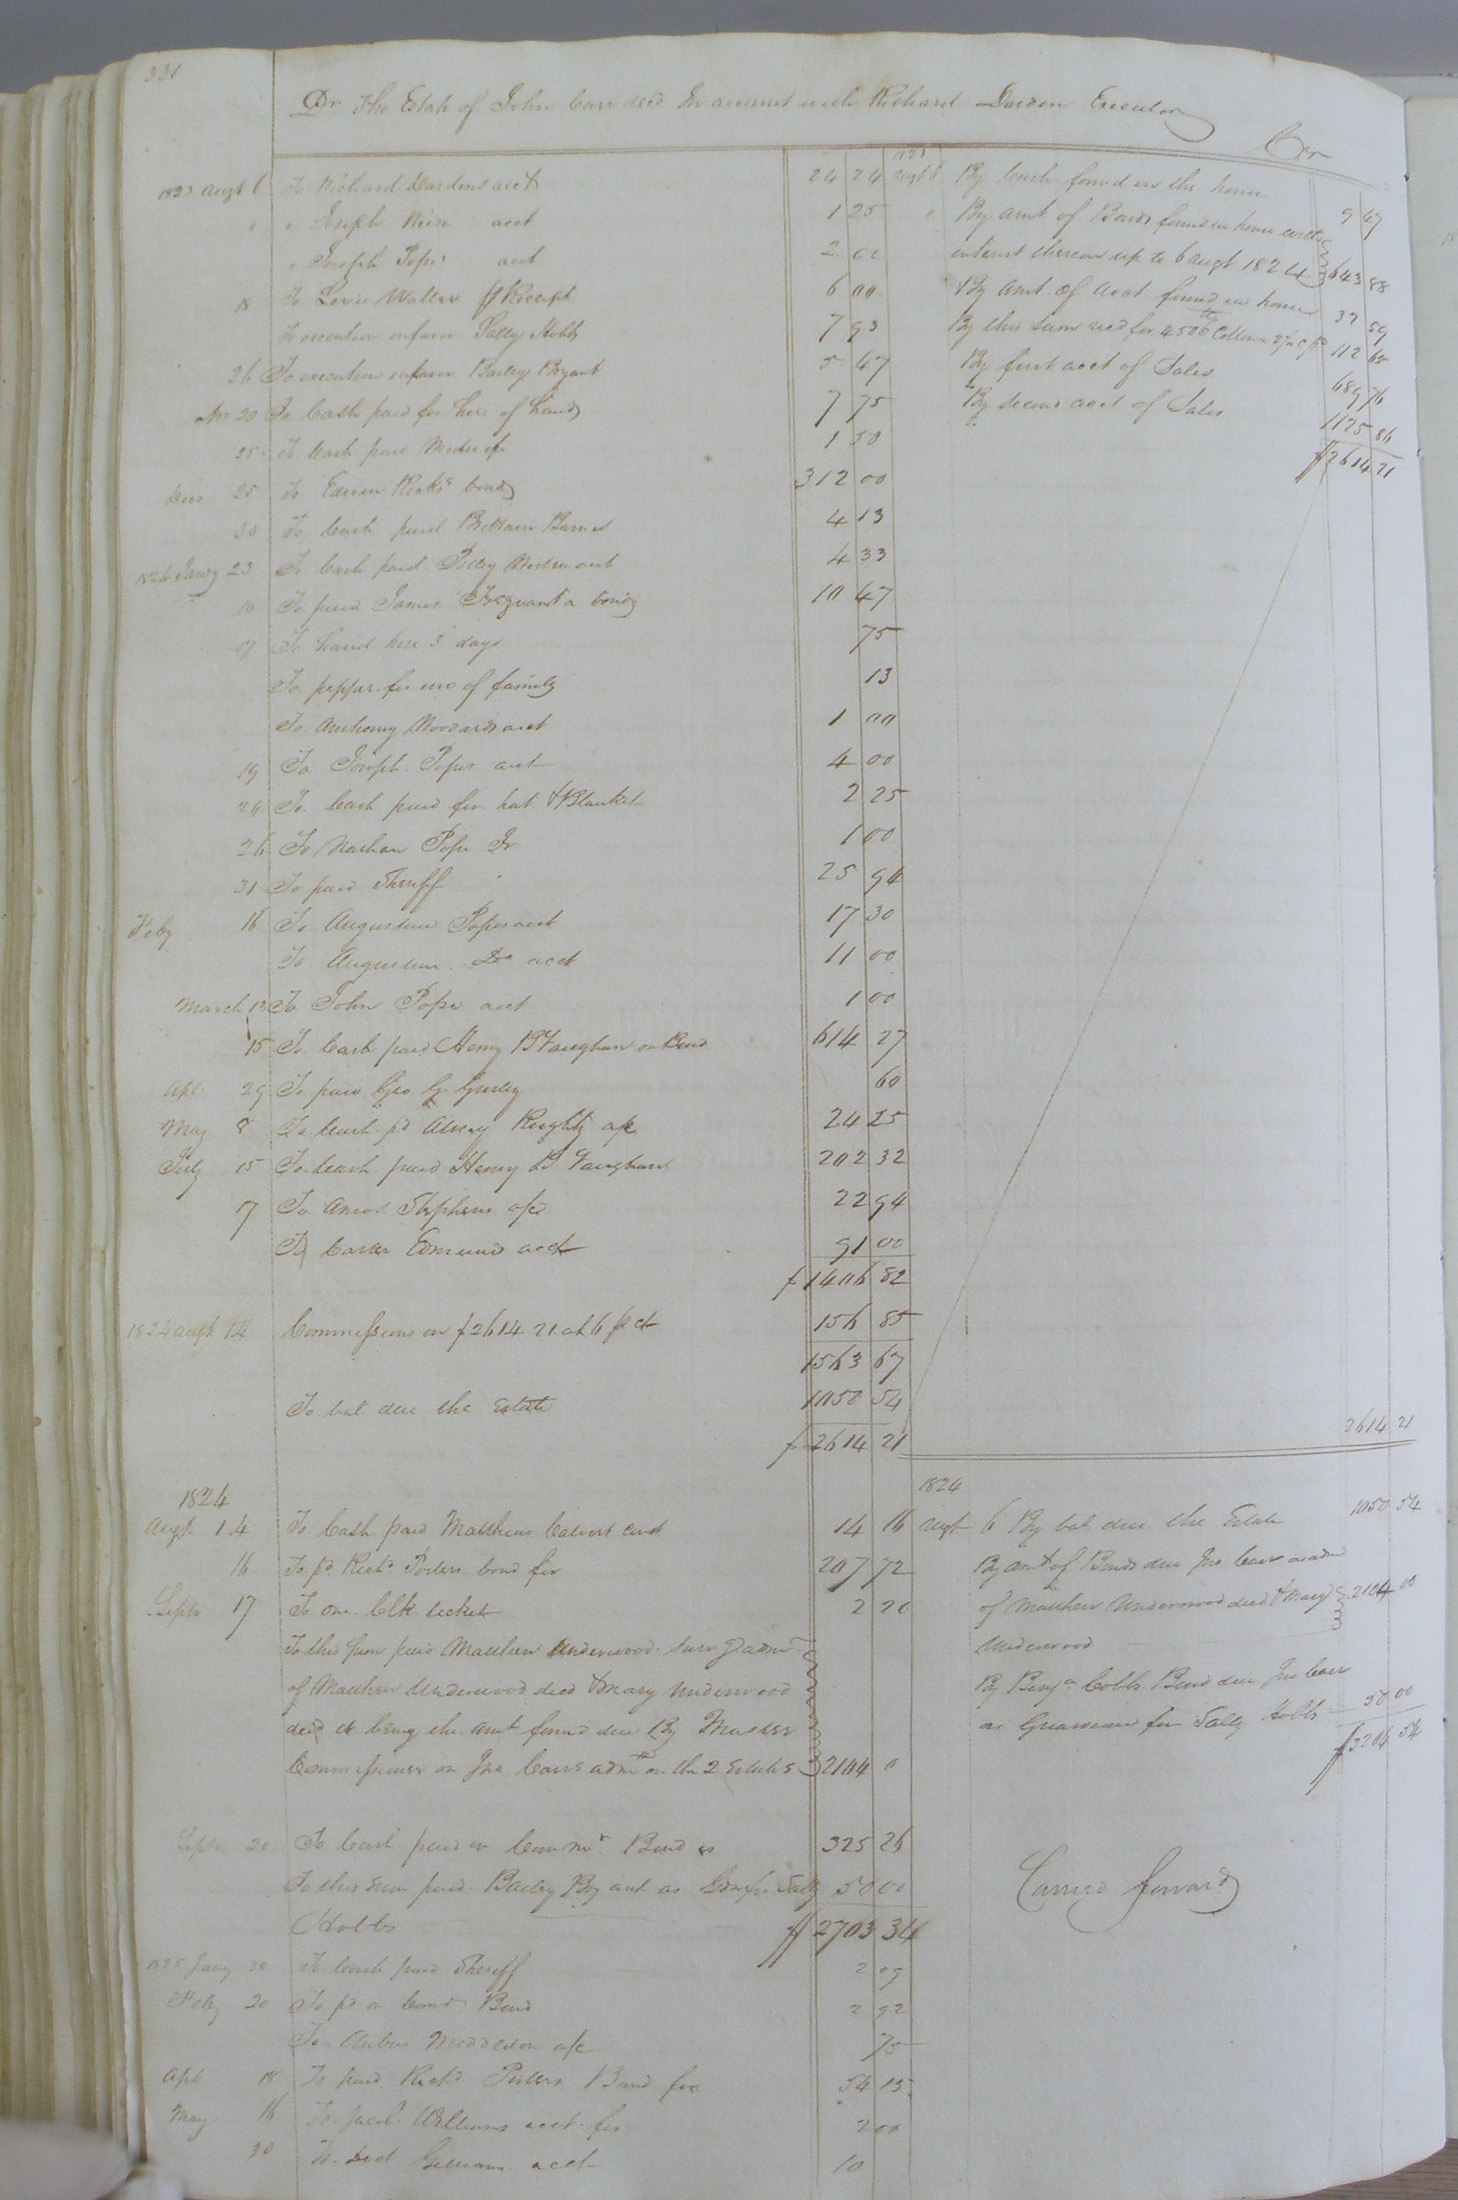 331
Dr The Estate of John Carr decd In account with Richard Darden Executor
Cr
1823 Augt 6 To Richard Dardens acct 24 24
" " Joseph acct 1 25
" Joseph Popes acct 2 00
18 To Levi Waller Receipt 6 00
To execution infavor Salley Hobbs 7 93
26 To execution infavor Bailey Bryant 5 47
Nov 20 To Cash paid for hire of hands 7 75
25 To Cash paid 1 50
Decr 25 To Ricks bond 312 00
30 To Cash paid Brittain Barnes 4 13
1824 Jany 23 To Cash paid Polley acct 4 33
10 To paid James a bond 10 47
17 To hand hire 3 days 75
To pepper for use of family 13
To Anthony Woodards acct 1 00
19 To Joseph Popes acct 4 00
24 To Cash paid for hat & Blanket 2 25
26 To Nathan Pope Jr 1 00
31 To paid Sheriff 25 94
Feby 16 To Augustine Popes acct 17 30
To Augustine Do acct 11 00
March 13 To John Pope acct 1 00
15 To Cash paid Henry B Vaughan on Bond 614 27
Apl 29 To paid Geo G Gurley 60
May 8 To Cash pd a/c 24 25
July 15 To Cash paid Henry B Vaughan 202 32
7 To Amos Stephens a/c 22 94
To Carter Edmund acct 91 00
$1406 82
1824 Augt 14 Commissions on $2614 21 at 6 p ct 156 85
1563 67
To bal due the Estate 1050 54
$2614 21
1823
Augt 6 By Cash found in the house 9 47
By amt of Bonds found in house with
interest thereon up to 6 Augt 1824 643 88
By Amt of Acct found in house 32 59
By this sum recd for 4506 lb Cotton 112 65
By first acct of Sales 689 76
By second acct of Sales 1125 86
$2614 21
2614 21
1824
Augt 14 To Cash paid Matthew Calvert 14 16
16 To pd Richd Porters bond for 207 72
Septr 17 To one Clk ticket 2 20
To this sum paid Matthew Underwood surv g admr
of Matthew Underwood decd & Mary Underwood
decd it being the amt found due By Master
Commissioner on Jno Carrs admtn on the 2 Estates 2104 0
Septr 20 To Cash paid on Bond 325 26
To this sum paid Bailey Bryant as Gdn for Sally 50 00
Hobbs $2703 34
1825 Jany 28 To Cash paid Sheriff 2 09
Feby 20 To pd a Bond 2 92
To a/c 75
Apl 18 To paid Richd Porters Bond for 54 15
May 16 To Jacob Williams acct for 2 00
30 To acct 10
1824
Augt 6 By bal due the Estate 1050 54
By amt of Bonds due Jno Carr as adm
of Matthew Underwood decd & Mary 2104 00
Underwood
By Benja Cobbs Bond due Jno Carr
as Guardian for Sally Hobbs 50 00
$3204 54
Carried forward